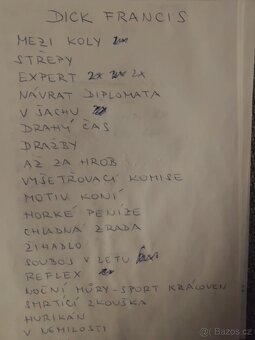 DICK FRANCIS
MEZI KOLY
STŘEPY
EXPERT 2x 2x
NÁVRAT DIPLOMATA
V ŠACHU
DRAHÝ ČAS
DRAŽBY
AŽ ZA HROB
VYŠETŘOVACÍ KOMISE
MOTIV KONÍ
HORKÉ PENÍZE
CHLADNÁ ZRADA
ŽIHADLO
SOUBOJ V LETU
REFLEX
NOČNÍ MŮRY - SPORT KRÁLOVEN
SMRTÍCÍ ZKOUŠKA
HURIKÁN
V NEMILOSTI
Bazoš.cz